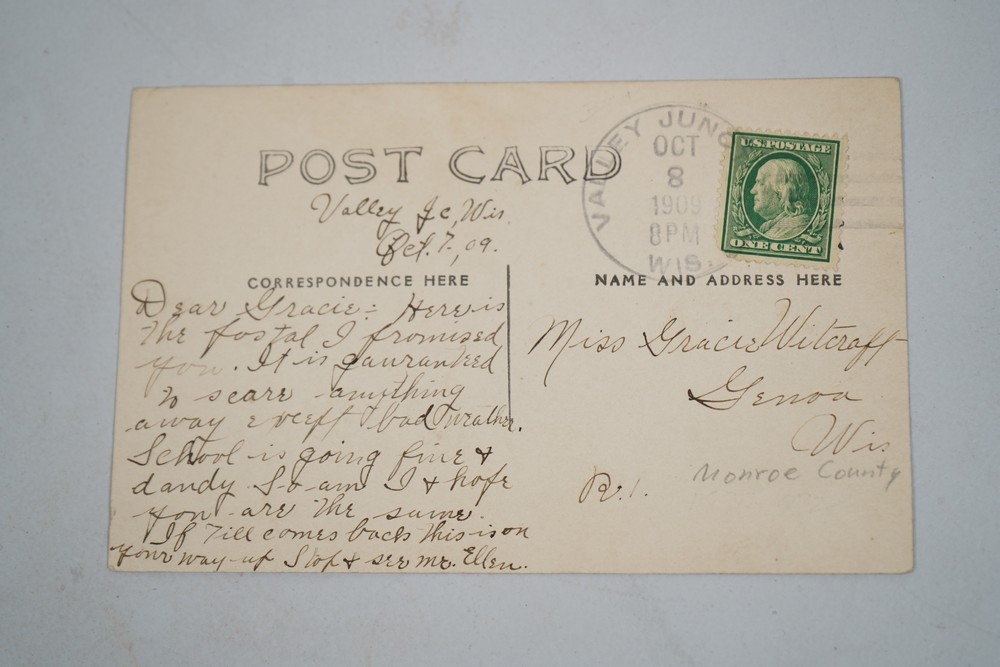 POST CARD
VALLEY JUNC
OCT
8
1909
8PM
WIS.
U.S. POSTAGE
ONE CENT
Valley Jc, Wis.
Oct. 7, 09.
CORRESPONDENCE HERE
Dear Gracie:- Here is
the postal I promised
you. It is guaranteed
to scare anything
away except bad weather.
School is going fine &
dandy. So am I & hope
you are the same.
If Till comes back this is on
your way up Stop & see me. Ellen.
NAME AND ADDRESS HERE
Miss Gracie Witcraft
Genoa
Wis
R.1.
Monroe County